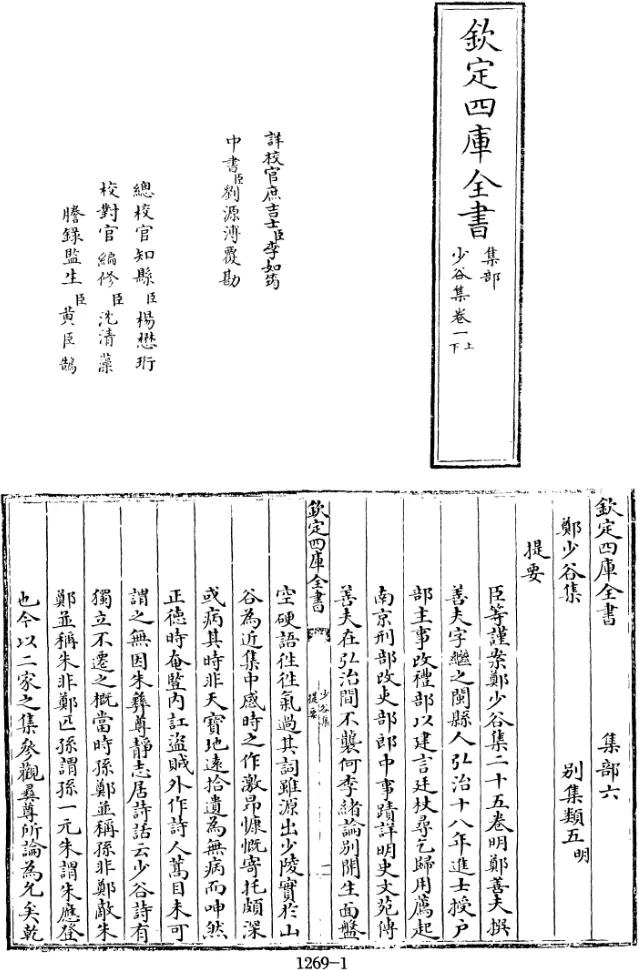 欽定四庫全書
集部
少谷集卷一上下
詳校官庶吉士臣李如筠
中書臣劉源溥覆勘
總校官知縣臣楊懋珩
校對官編修臣沈清藻
謄錄監生臣黃臣鵠
欽定四庫全書 集部六
鄭少谷集 別集類五明
提要
臣等謹案鄭少谷集二十五卷明鄭善夫撰
善夫字繼之閩縣人弘治十八年進士授戶
部主事改禮部以建言廷杖尋乞歸用薦起
南京刑部改吏部郎中事蹟詳明史文苑傳
善夫在弘治間不襲何李緒論別開生面盤
欽定四庫全書
少谷集
提要
一
空硬語往往氣過其詞雖源出少陵實於山
谷為近集中感時之作激昂慷慨寄托頗深
或病其時非天寶地遠拾遺為無病而呻然
正德時奄豎內訌盜賊外作詩人蒿目未可
謂之無因朱彝尊靜志居詩話云少谷詩有
獨立不遷之概當時孫鄭並稱孫非鄭敵朱
鄭並稱朱非鄭匹孫謂孫一元朱謂朱應登
也今以二家之集參觀彝尊所論為允矣乾
1269-1